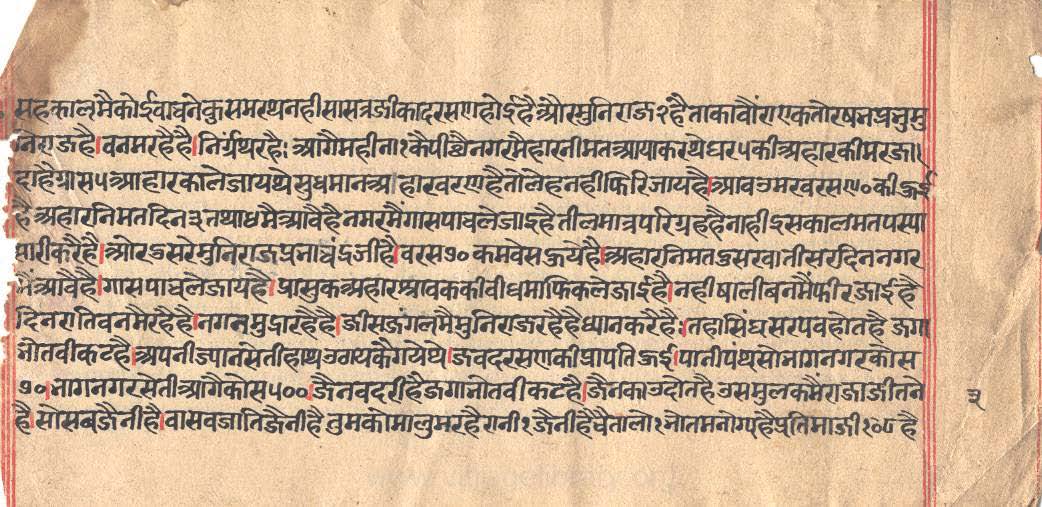 महकालमैकोईवावनेकुसमरथनहीसासत्रजीकादरसणहोईहैऔरमुनिराज२हैताकावौंराएकतोरषनप्रनुमु
निराजहै।वनमरहैहै।निर्ग्रंथरहै।आगैमहीना१कैपीछैनगरमैहारनीमतआयाकरथेघर५कीअहारकीमरजा
दाहैग्रास५आहारकालेजायथेसुधमानअाहारवरणहैतोलेहनहीफिरिजायहै।आवउमरवरस८०कीऊई
हैअहारनिमतदिन३तथा४मैआवैहैनगरमैंगासपाचलेजाईहैतीलमात्रपरिग्रहहैनाहीइसकालमतपस्पा
भारीकरैहै।ओरउसरेमुनिराजप्रनाचंद्रजीहै।वरस७०कमवेसऊयेहै।अहारनिमतदुसरवातीसरदिननगर
मेंआवैहै।गासपाचलेजायहै।प्रासुकअहारश्रावककीवीधमाफिकलेजाईहै।नहीषालीवनमैंफीरजाईहै
दिनरातिवनमैरहैहै।नगनमुद्रारहैहै।जीसजंगलमैमुनिराजरहैहैध्यानकरैहै।तहासिंघसरपवहोतहैजगा
भोतवीकटहै।अपनीज्यानसेतीहाथउगयकैगयेथे।जवदरसणकीप्रापतिऊई।पानीपंथसोनागनगरकोस
७०।नागनगरसेतीआगैकोस५००।जैनवदरीहैजगाभोतवीकटहै।जैनकाउदोतहैउसमुलकमैंराजाजीतने
है।सोसबजैनीहै।वासवजातिजैनीहैतुमकोमालुमरहैरानी१जैनीहैचैतालो१भोतमनोग्यहैप्रतिमाजी१०८है
३